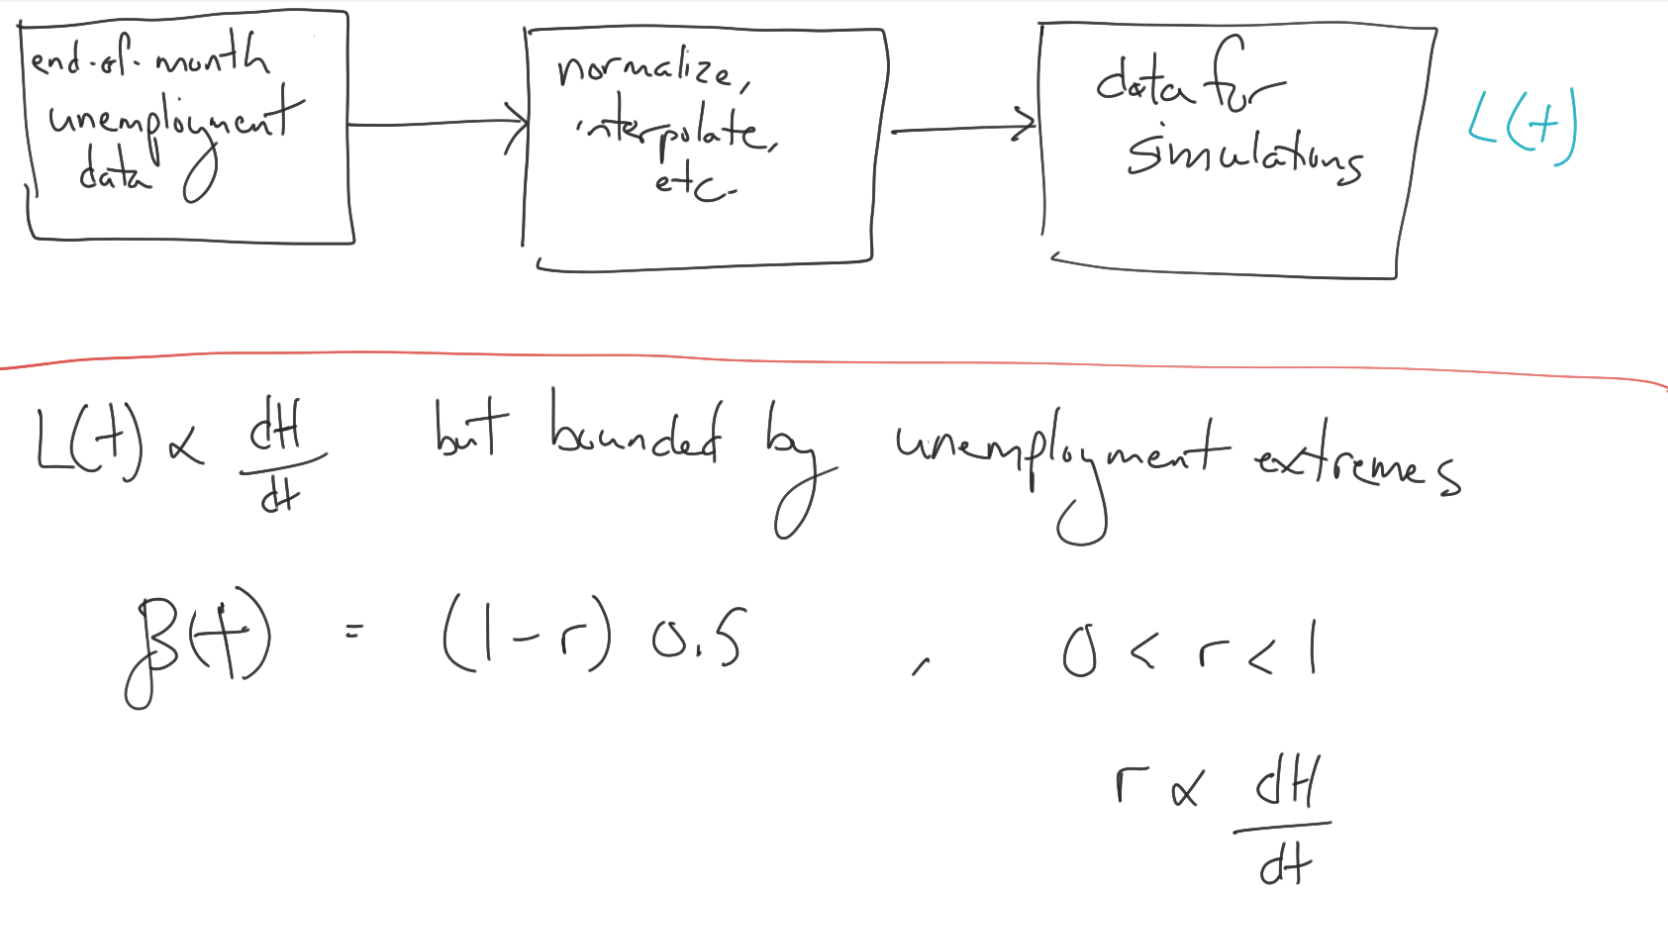 end-of-month
unemployment
data
normalize,
interpolate,
etc.
data for
simulations
L(t)
L(t) ∝ dH/dt but bounded by unemployment extremes
β(t) = (1-r) 0.5 , 0 < r < 1
r ∝ dH/dt